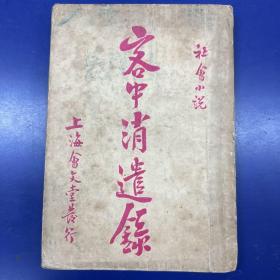 社會小說
客中消遣錄
上海會文堂發行